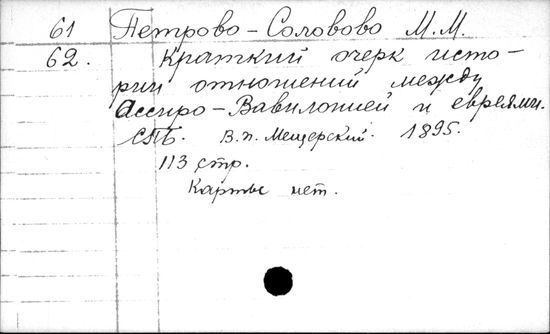 61 Петрово-Соловово М.М.
62. Краткий очерк исто-
рии отношений между
Ассиро-Вавилонией и евреями.
СПБ. В.п. Мещерский. 1895.
113 стр.
Карты нет.